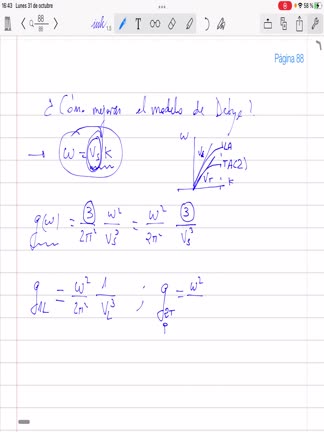 16:43 Lunes 31 de octubre 58 %
88
88
1.5
Página 88
¿Cómo mejorar el modelo de Debye?
→ ω = Vs k
ω
VL
LA
TA(2)
VT
k
g(ω) = 3/2π² ω²/Vs³ = ω²/2π² 3/Vs³
g1L = ω²/2π² 1/VL³ ; g2T = ω²